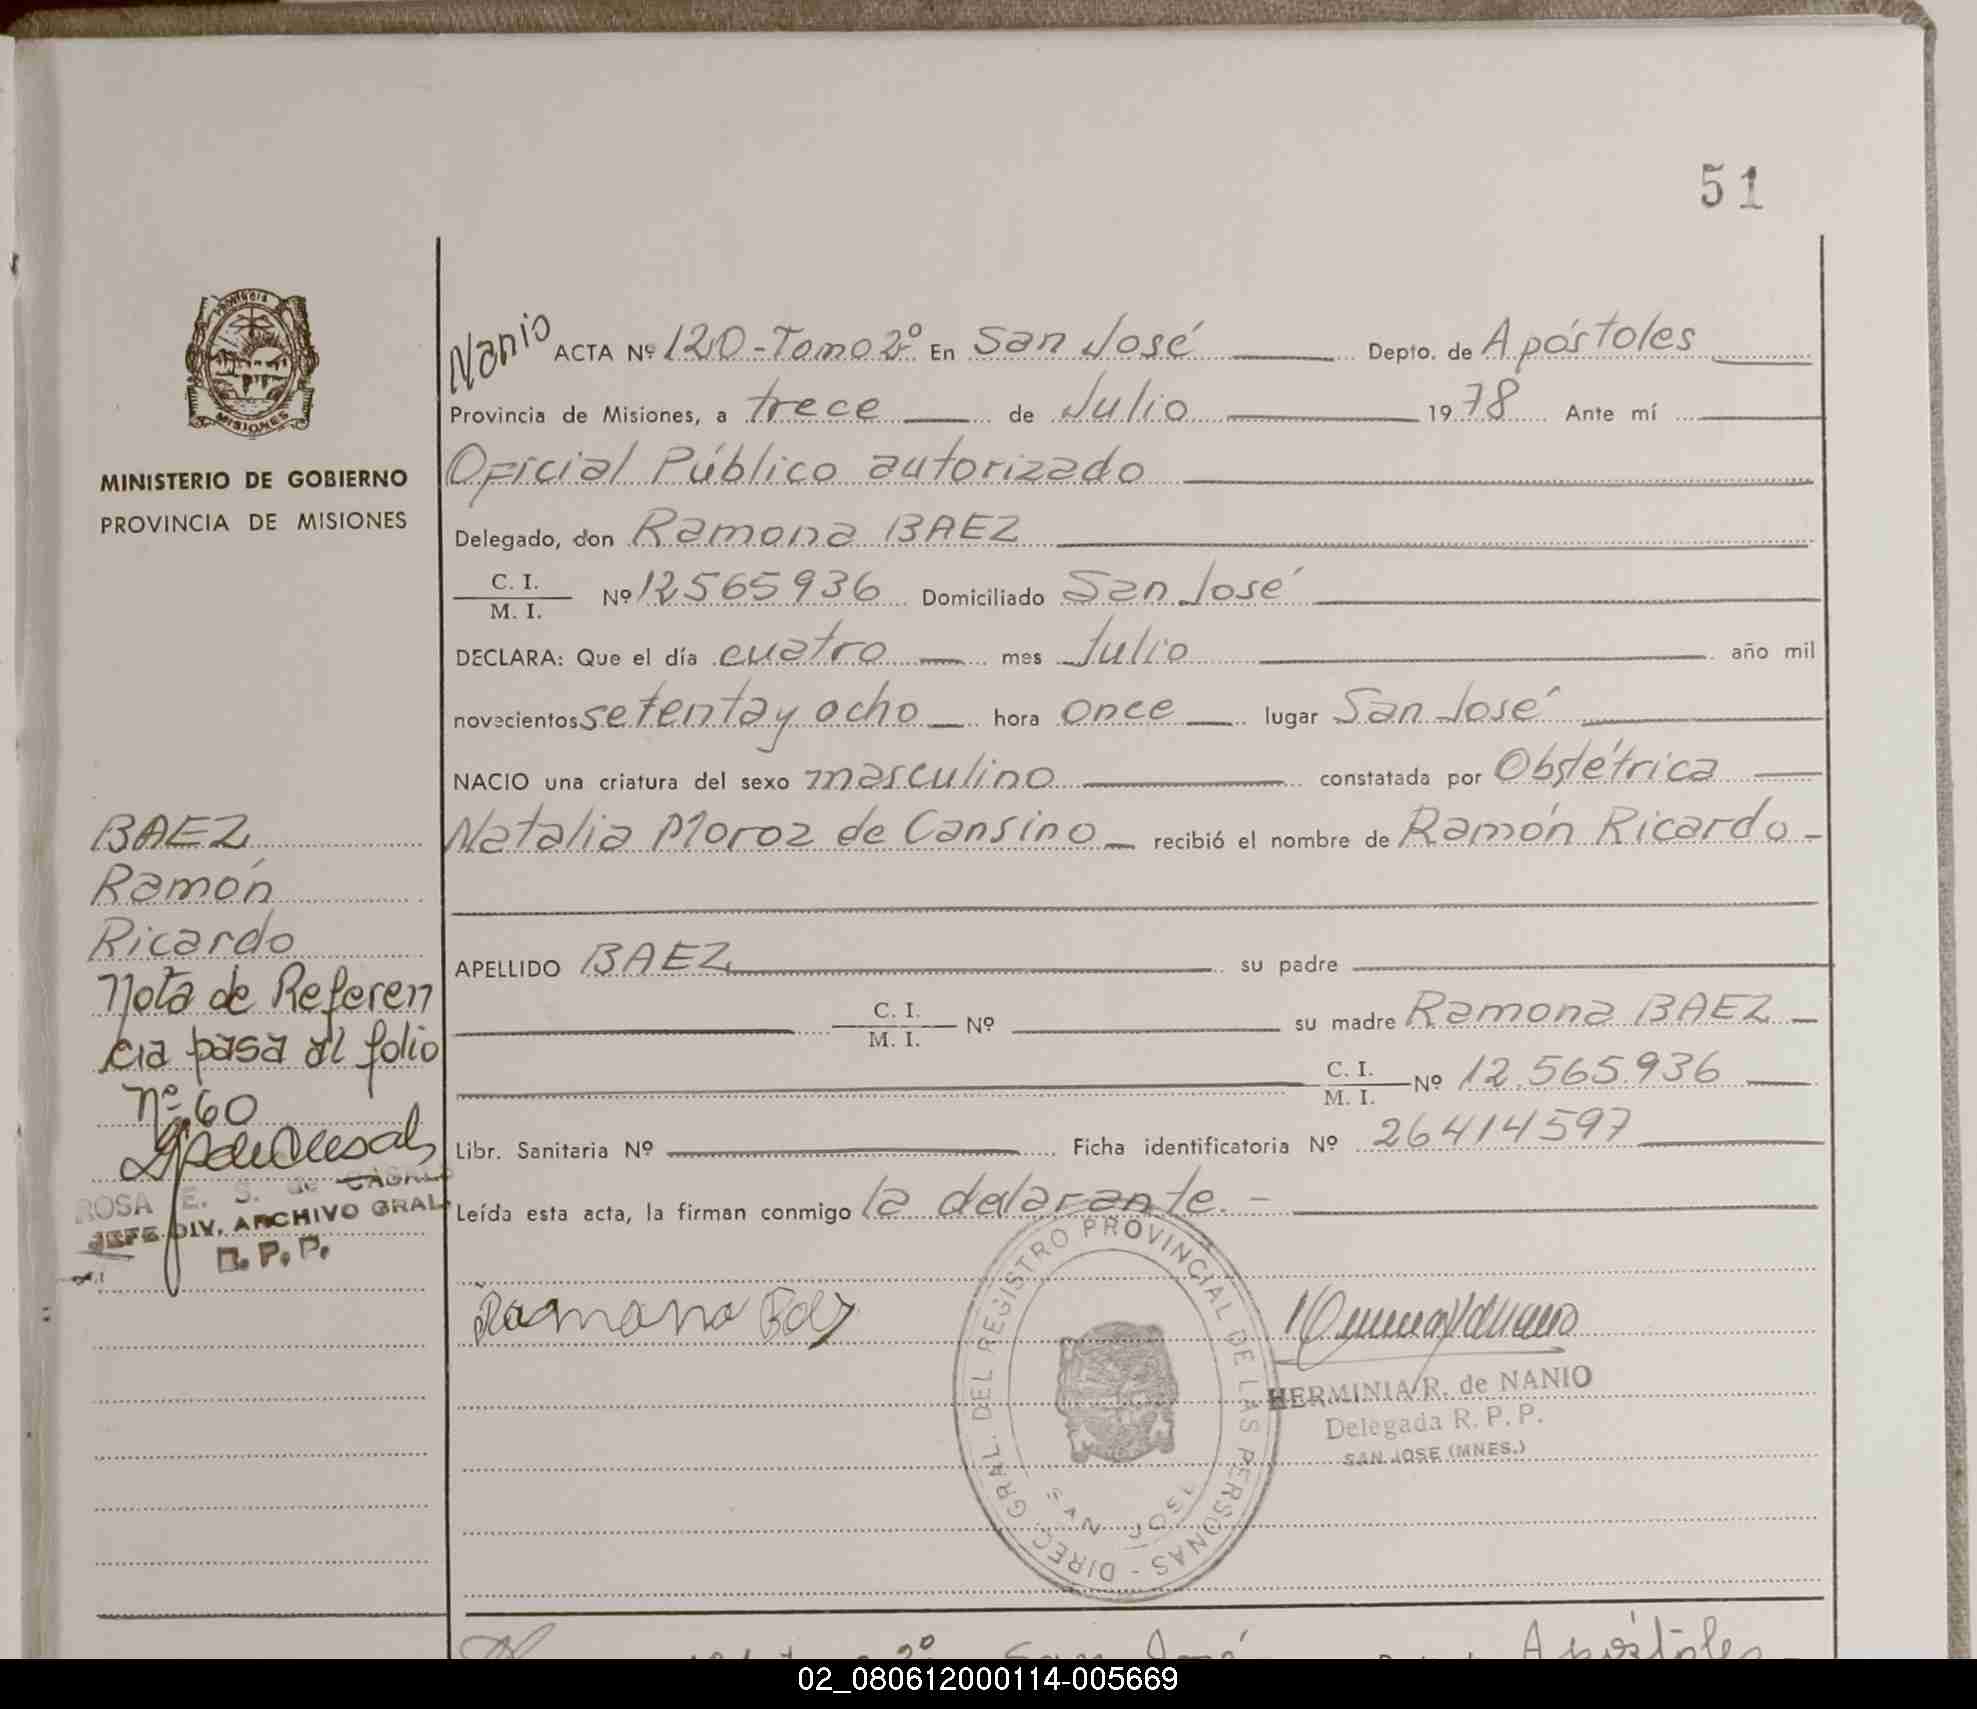 51
PROVINCIA
MISIONES
MINISTERIO DE GOBIERNO
PROVINCIA DE MISIONES
BAEZ
Ramón
Ricardo
Nota de Referen
cia pasa al folio
Nº 60
ROSA E. S. de CASALS
JEFE DIV. ARCHIVO GRAL
R. P. P.
Nanio ACTA Nº 120-Tomo 2º En San José Depto. de Apóstoles
Provincia de Misiones, a trece de Julio 1978 Ante mí
Oficial Público autorizado
Delegado, don Ramona BAEZ
C. I.
M. I. Nº 12565936 Domiciliado San José
DECLARA: Que el día cuatro mes Julio año mil
novecientos setenta y ocho hora once lugar San José
NACIO una criatura del sexo masculino constatada por Obstétrica
Natalia Moroz de Cansino recibió el nombre de Ramón Ricardo
APELLIDO BAEZ su padre
C. I.
M. I. Nº su madre Ramona BAEZ
C. I.
M. I. Nº 12.565.936
Libr. Sanitaria Nº Ficha identificatoria Nº 26414597
Leída esta acta, la firman conmigo la delarante. -
Ramona Baz
DIREC. GRAL. DEL REGISTRO PROVINCIAL DE LAS PERSONAS -
SAN JOSE
HERMINIA R. de NANIO
Delegada R. P. P.
SAN JOSE (MNES.)
2º San José Apóstoles
02_080612000114-005669